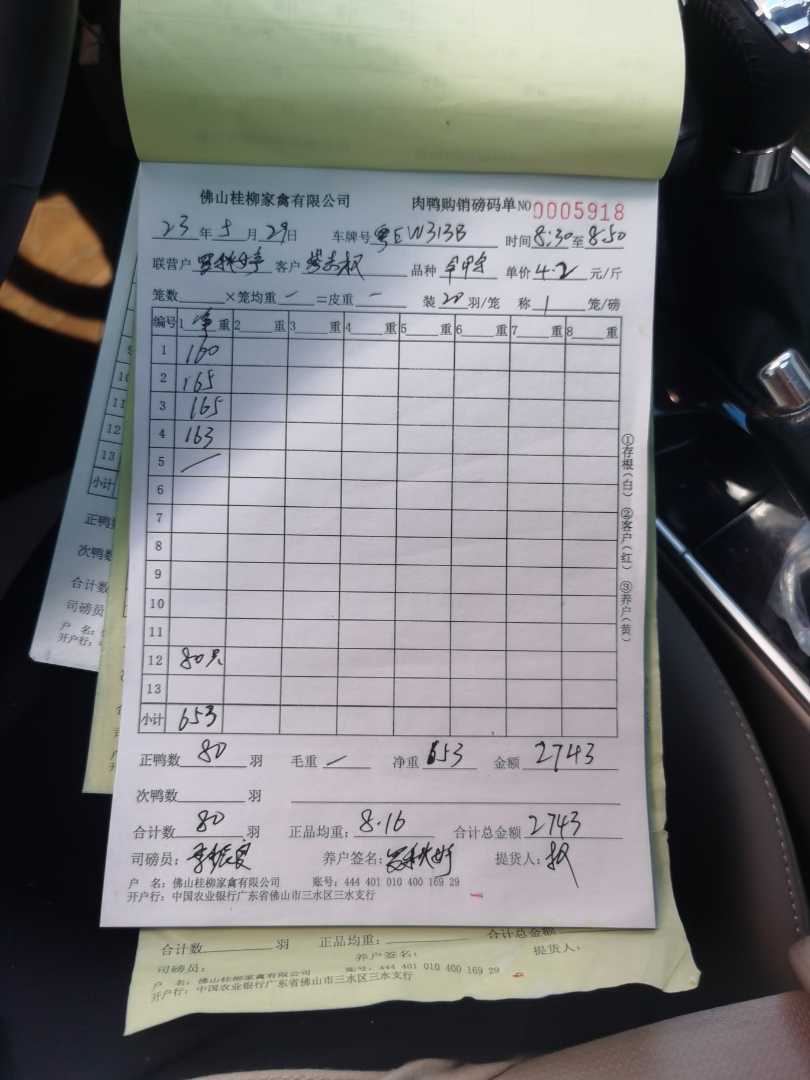 佛山桂柳家禽有限公司 肉鸭购销磅码单 NO 0005918
23 年 5 月 29 日 车牌号 粤EW313B 时间 8:30 至 8:50
联营户 客户 品种 单价 4.2 元/斤
笼数 ×笼均重 — =皮重 — 装 20 羽/笼 称 1 笼/磅
编号 1 净 重 2 重 3 重 4 重 5 重 6 重 7 重 8 重
1 160
2 165
3 165
4 163
5 /
6
7
8
9
10
11
12 80只
13
小计 653
①存根(白) ②客户(红) ③养户(黄)
正鸭数 80 羽 毛重 / 净重 653 金额 2743
次鸭数 羽
合计数 80 羽 正品均重: 8.16 合计总金额 2743
司磅员: 养户签名: 提货人: 权
户 名: 佛山桂柳家禽有限公司 账号: 444 401 010 400 169 29
开户行: 中国农业银行广东省佛山市三水区三水支行
合计数 羽 正品均重: 合计总金额
司磅员: 养户签名: 提货人:
户 名: 佛山桂柳家禽有限公司 账号: 444 401 010 400 169 29
开户行: 中国农业银行广东省佛山市三水区三水支行
11
12
13
小计
正鸭数
次鸭数
合计数
司磅员
户 名:
开户行: